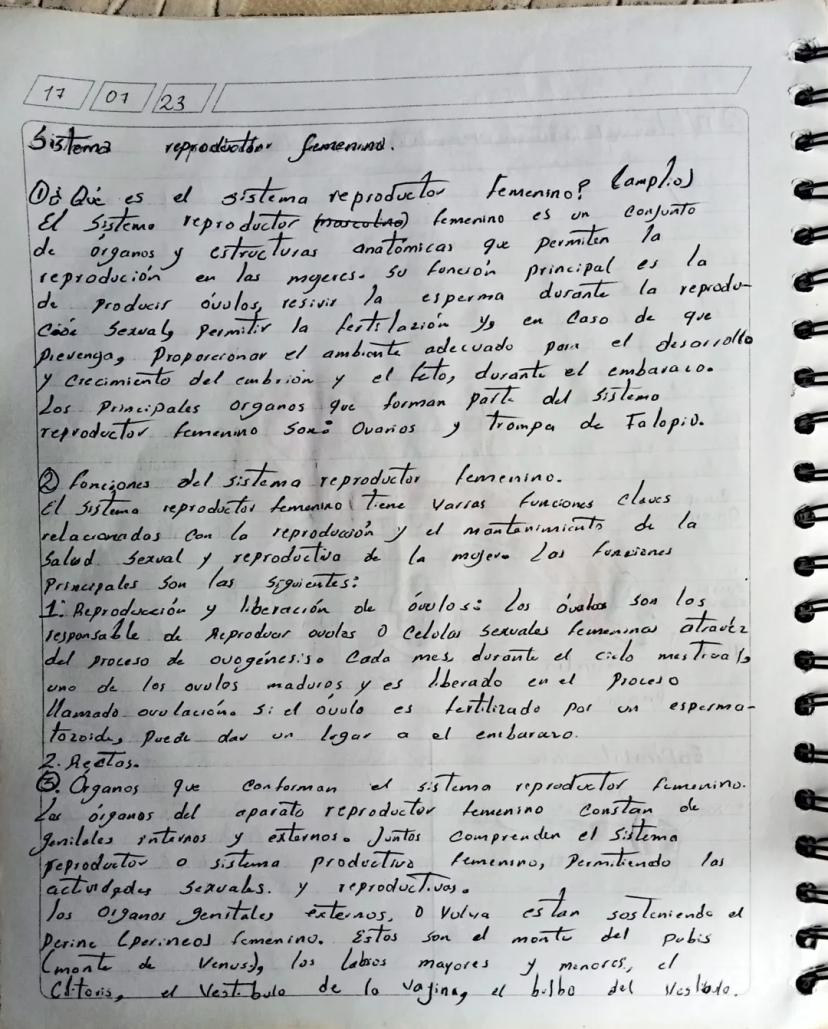 17 07 23
Sistema reproductor femenino.
① ¿Qué es el sistema reproductor Femenino? (amplio)
El Sistema reproductor (masculino) femenino es un conjunto
de órganos y estructuras anatómicas que permiten la
reprodución en las mujeres. Su función principal es la
de producir óvulos, resivir la esperma durante la reprodu-
Sexual, permitir la fertilazión y, en Caso de que
Prevenga, Proporcionar el ambiente adecuado para el desarrollo
y crecimiento del embrión y el feto, durante el embaraco.
Los Principales organos que forman parte del sistema
reproductor femenino son: Ovarios y trompa de Falopio.
② Fonciones del sistema reproductor femenino.
El sistema reproductor femenino tiene varias funciones claves
relacionados con la reproducción y el mantenimiento de la
Salud sexual y reproductiva de la mujer. Las funciones
Principales son las siguientes:
1. Reproducción y liberación de óvulos: Los óvalos son los
responsable de Reproducir ovulos o Celulas sexuales femeninas atravéz
del proceso de ovogénesis. Cada mes, durante el ciclo
uno de los ovulos maduros y es liberado en el Proceso
llamado ovulación. Si el óvulo es fertilizado por un esperma-
tozoide, Puede dar un lugar a el embarazo.
2.
③. Órganos que conforman el sistema reproductor femenino.
Los órganos del aparato reproductor femenino constan de
genitales internos y externos. Juntos comprenden el sistema
reproductor o sistema productivo femenino, Permitiendo las
actividades sexuales. y reproductivas.
los Organos genitales externos, o Vulva estan sosteniendo el
Perine (perineo) femenino. Estos son el monte del pubis
(monte de Venus), los labios mayores y menores, el
Clítoris, el Vestíbulo de la vagina, el bulbo del Vestíbulo.